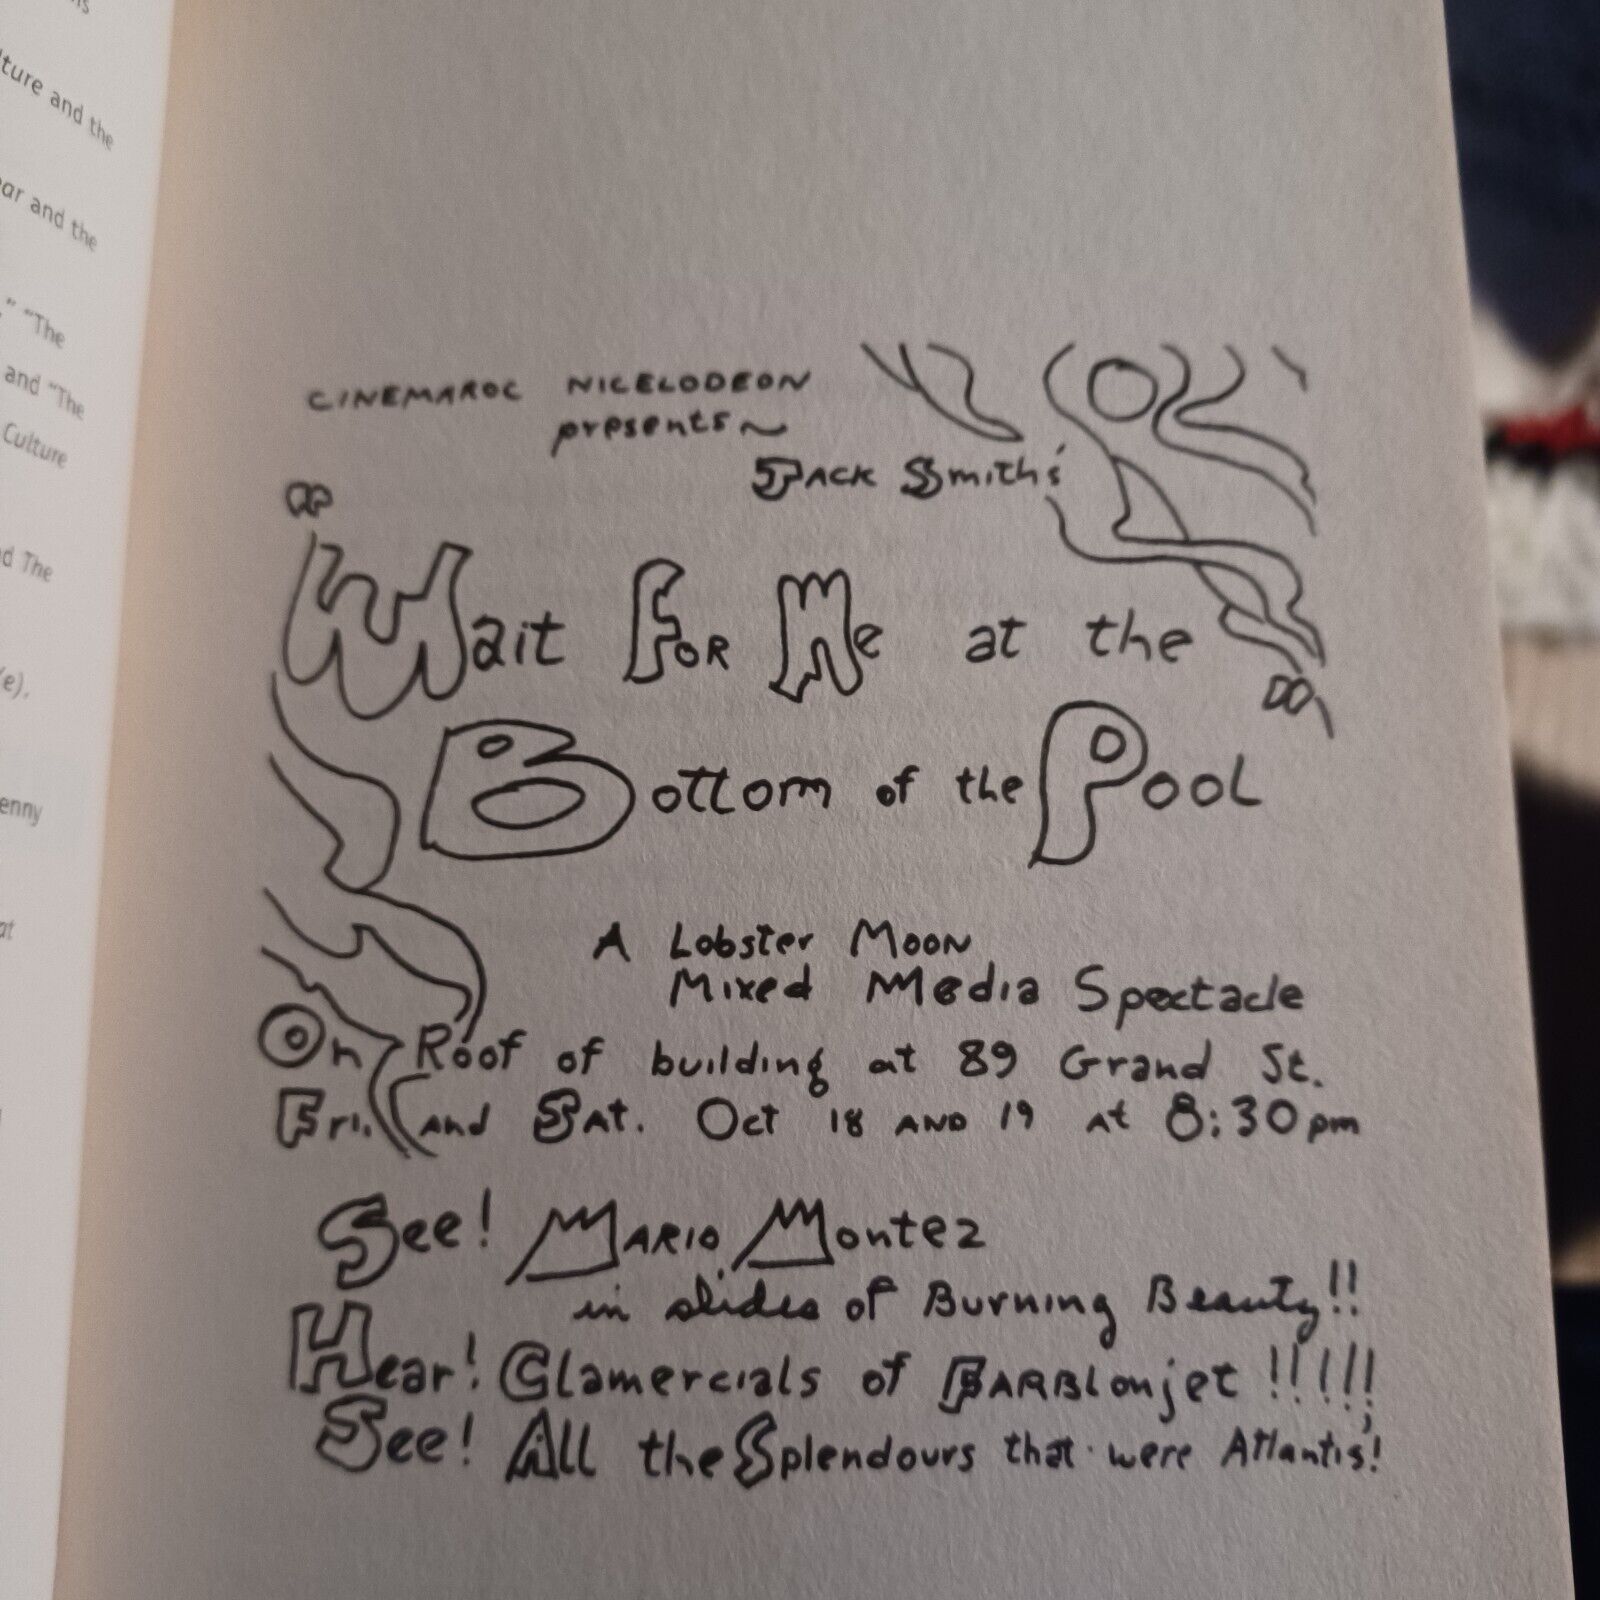 ns
lture and the
ar and the
," "The
and "The
Culture
d The
(e),
enny
at
CINEMAROC NICELODEON
presents~
JACK Smith's
Wait FOR Me at the
Bottom of the Pool
A Lobster Moon
Mixed Media Spectacle
On Roof of building at 89 Grand St.
Fri. and SAT. Oct 18 AND 19 At 8:30 pm
See! MARIO Montez
in slides of Burning Beauty!!
Hear! Glamercials of BARBLonjet !!!!!
See! All the Splendours that were Atlantis'!